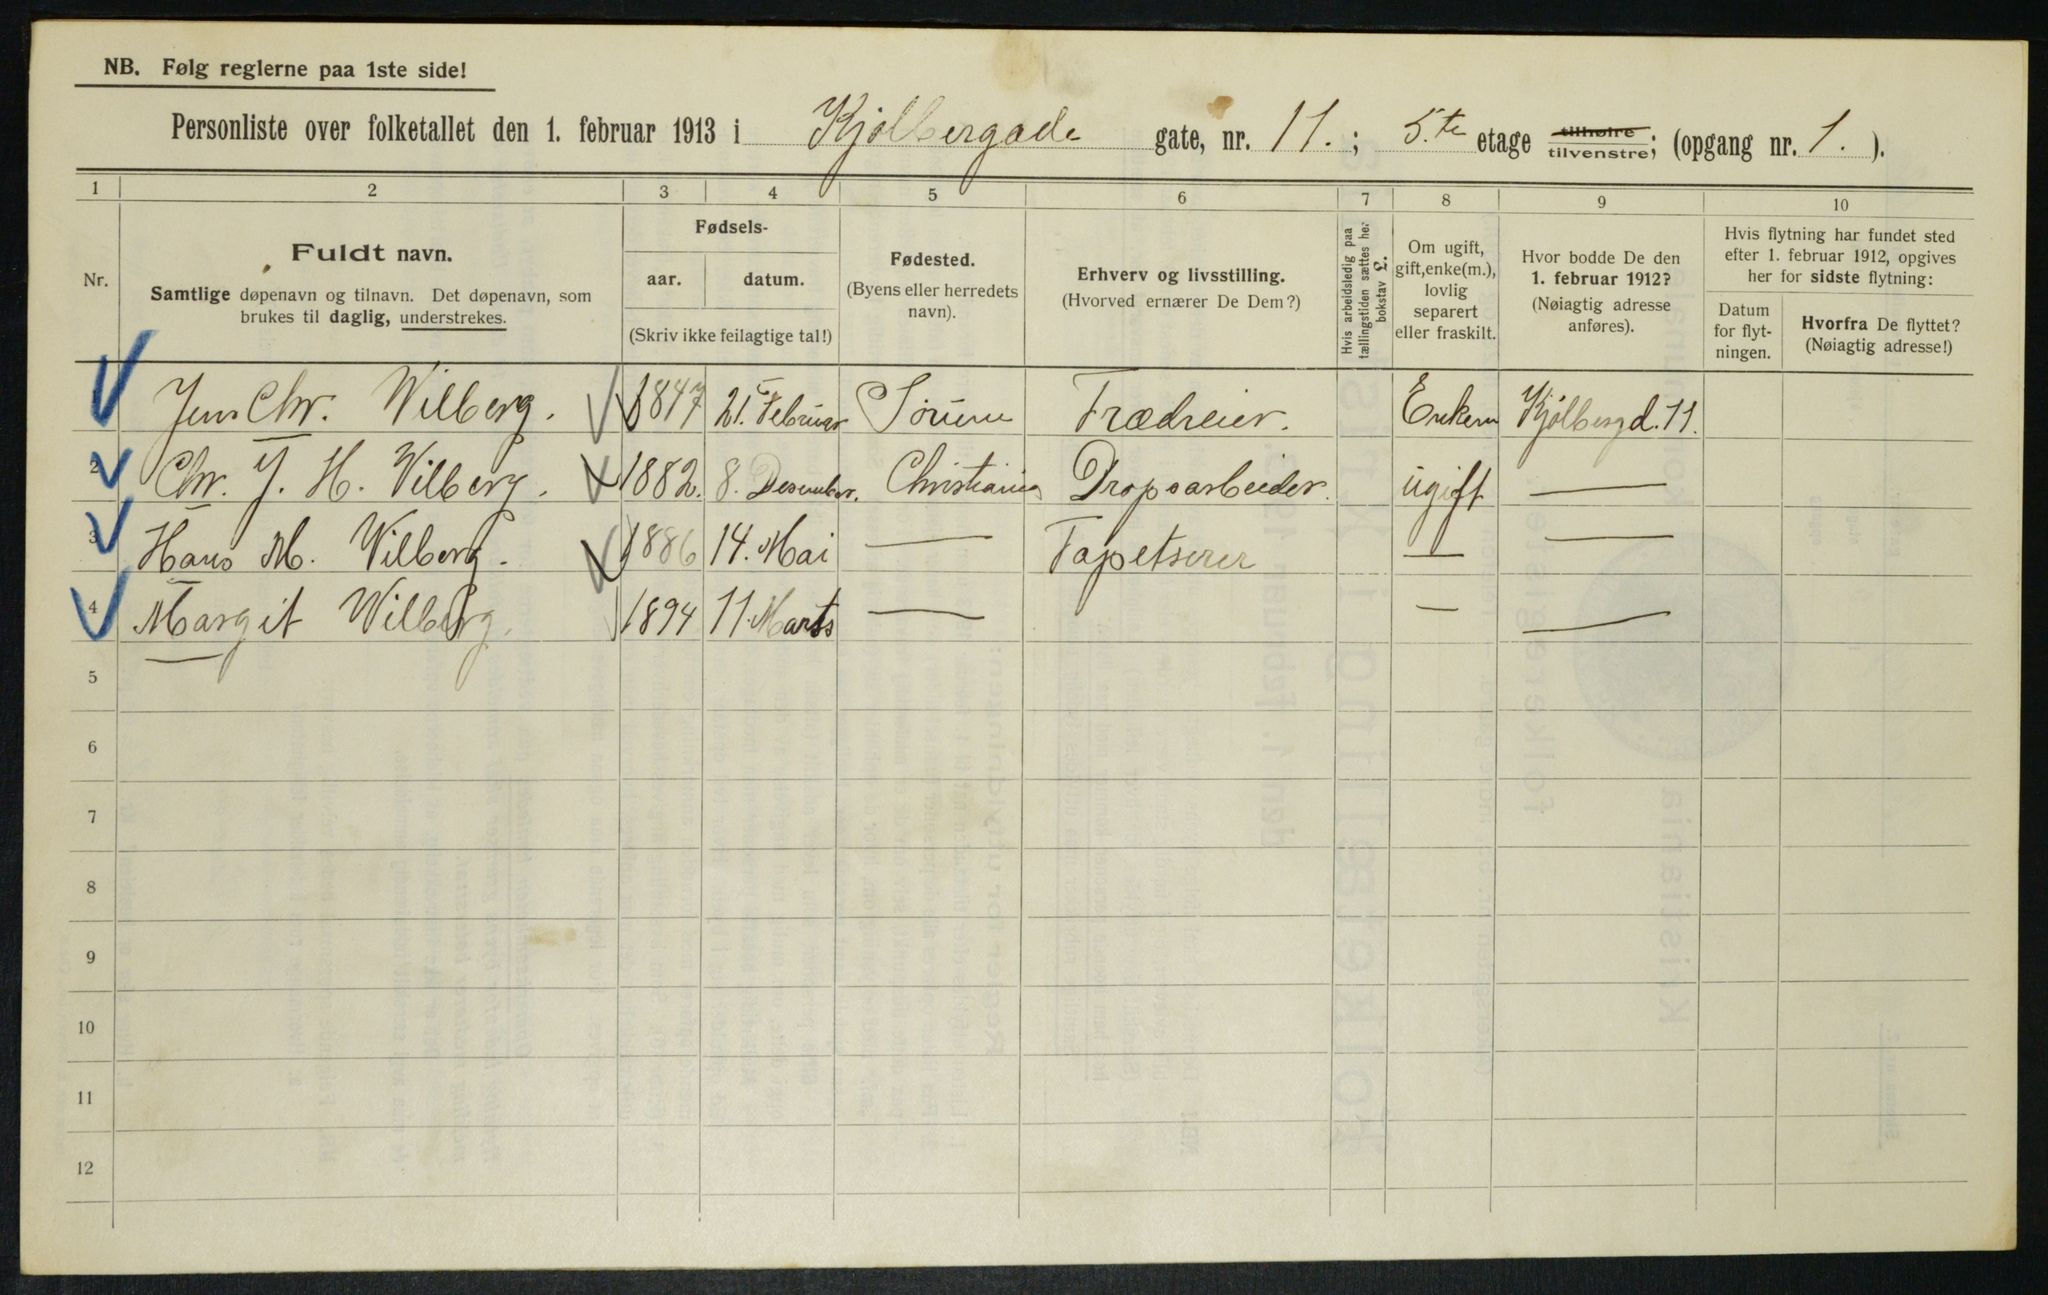 NB. Følg reglerne paa 1ste side!
Personliste over folketallet den 1. februar 1913 i Kjølbergade gate, nr. 11. ; 5.te etage tilhøire tilvenstre; (opgang nr. 1. ).
1 2 3 4 5 6 7 8 9 10
Nr.
Fuldt navn.
Samtlige døpenavn og tilnavn. Det døpenavn, som
brukes til daglig, understrekes.
Fødsels-
aar. datum.
(Skriv ikke feilagtige tal!)
Fødested.
(Byens eller herredets
navn).
Erhverv og livsstilling.
(Hvorved ernærer De Dem?)
Hvis arbeidsledig paa
tællingstiden sættes her
bokstav L.
Om ugift,
gift, enke(m.),
lovlig
separert
eller fraskilt.
Hvor bodde De den
1. februar 1912?
(Nøiagtig adresse
anføres).
Hvis flytning har fundet sted
efter 1. februar 1912, opgives
her for sidste flytning:
Datum
for flyt-
ningen.
Hvorfra De flyttet?
(Nøiagtig adresse!)
Jens Chr. Wilberg. 1847 21. Februar Sørum Trædreier. Enkem Kjølbergd. 11.
2 Chr. J. H. Wilberg. 1882. 8. Desember. Christiania Dropsarbeider. ugift —
3 Hans M. Wilberg. 1886 14. Mai — Tapetserer — —
4 Margit Wilberg. 1894 11. Marts — — —
5
6
7
8
9
10
11
12